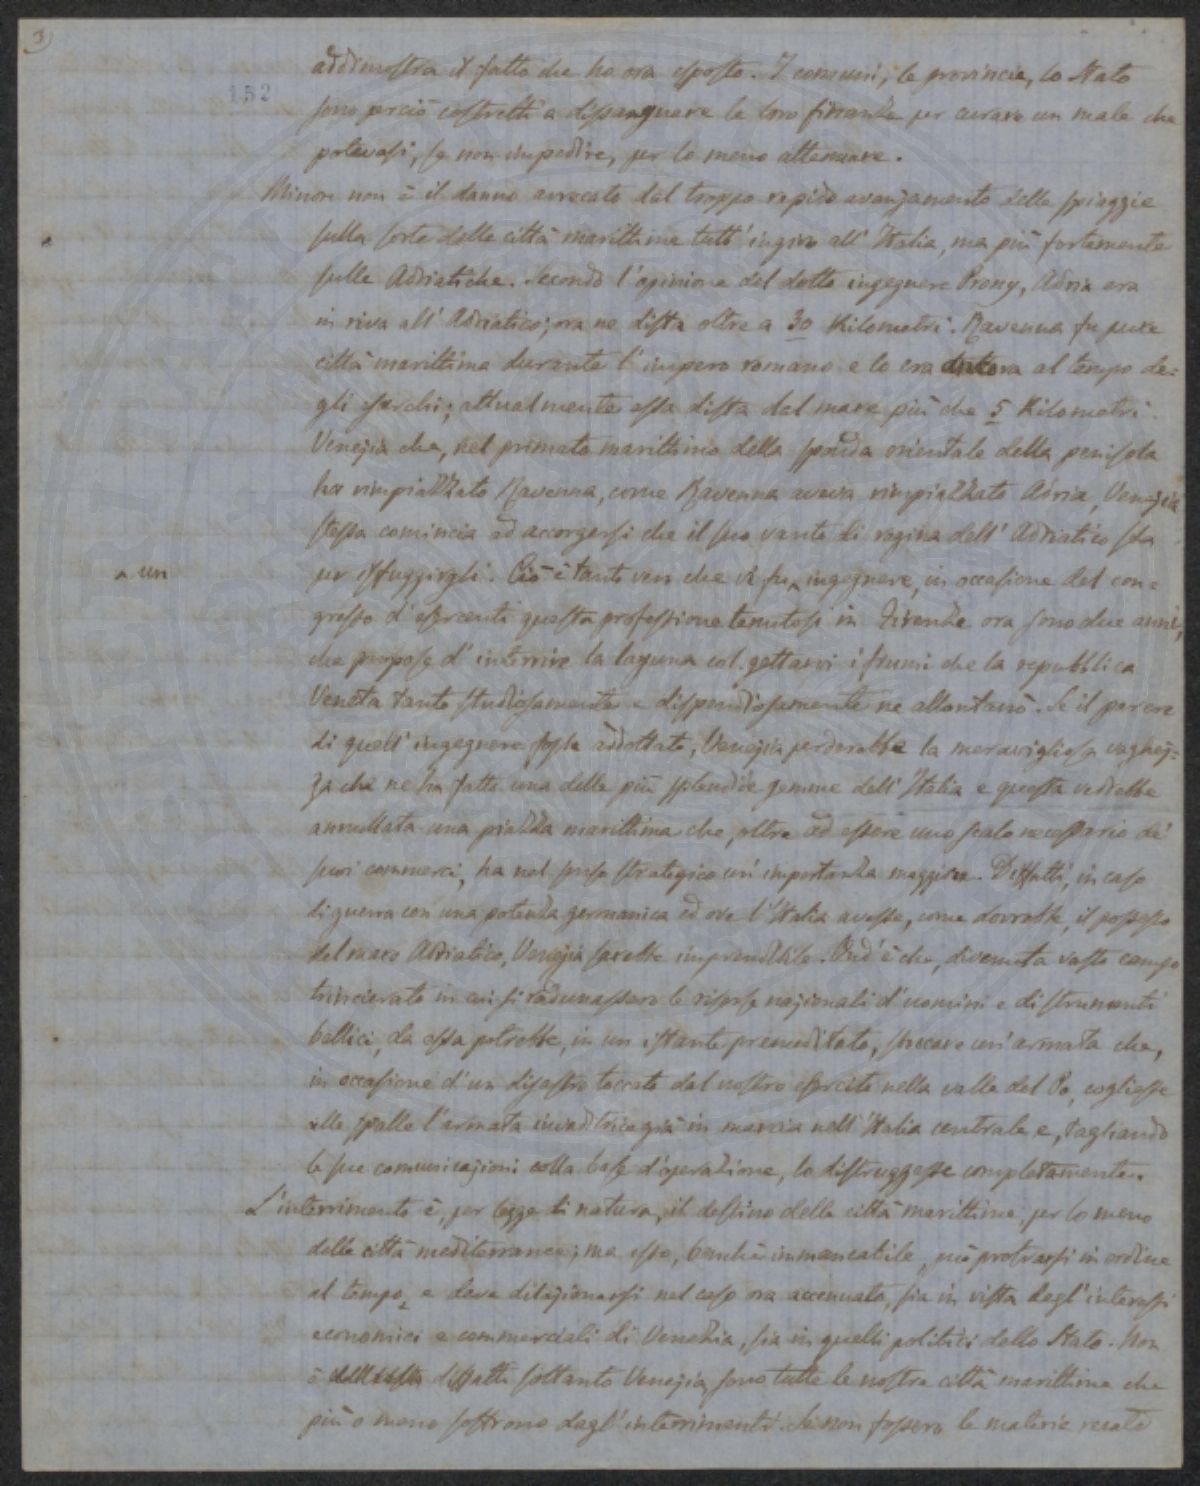 3)
152
addimostra il fatto che ho ora esposto. I comuni, le provincie, lo Stato
sono perciò costretti a dissanguare le loro finanze per curare un male che
potevasi, se non impedire, per lo meno attenuare.
Minore non è il danno arrecato dal troppo rapido avanzamento delle spiaggie
sulla sorte delle città marittime tutt'ingiro all'Italia, ma più fortemente
sulle Adriatiche. Secondo l'opinione del dotto ingegnere Prony, Adria era
in riva all'Adriatico; ora ne dista oltre a 30 Kilometri. Ravenna fu pure
città marittima durante l'impero romano e lo era ancora al tempo de=
gli esarchi; attualmente essa dista dal mare più che 5 Kilometri.
Venezia che, nel primato marittimo della sponda orientale della penisola
ha rimpiazzato Ravenna, come Ravenna aveva rimpiazzato Adria, Venezia
stessa comincia ad accorgersi che il suo vanto di regina dell'Adriatico sta
per isfuggirgli. Ciò è tanto vero che vi fu ^ ingegnere, in occasione del con=
^ un
gresso d'esercenti questa professione tenutosi in Firenze ora sono due anni,
che propose d'interrire la laguna col gettarvi i fiumi che la repubblica
Veneta tanto studiosamente e dispendiosamente ne allontanò. Se il parere
di quell'ingegnere fosse addottato, Venezia perderebbe la meravigliosa vaghez=
za che ne ha fatto una delle più splendide gemme dell'Italia e questa vedrebbe
annullata una piazza marittima che, oltre ad essere uno scalo necessario de'
suoi commerci, ha nel senso strategico un'importanza maggiore. Diffatti, in caso
di guerra con una potenza germanica ed ove l'Italia avesse, come dovrebbe, il possesso
del mare Adriatico, Venezia sarebbe imprendibile. Ond'è che, divenuta vasto campo
trincierato in cui si radunassero le risorse nazionali d'uomini e di strumenti
bellici, da essa potrebbe, in un istante premeditato, sboccare un'armata che,
in occasione d'un disastro toccato dal nostro esercito nella valle del Po, cogliesse
alle spalle l'armata invaditrice già in marcia nell'Italia centrale e, tagliando
le sue comunicazioni colla base d'operazione, lo distruggesse completamente.
L'interrimento è, per legge di natura, il destino delle città marittime, per lo meno
delle città mediterranee; ma esso, benchè immancabile, può protrarsi in ordine
al tempo, e deve dilazionarsi nel caso ora accennato, sia in vista degl'interessi
economici e commerciali di Venezia, sia in quelli politici dello Stato. Non
è diffatti soltanto Venezia, sono tutte le nostre città marittime che
più o meno soffrono degl'interrimenti. Se non fossero le materie recate